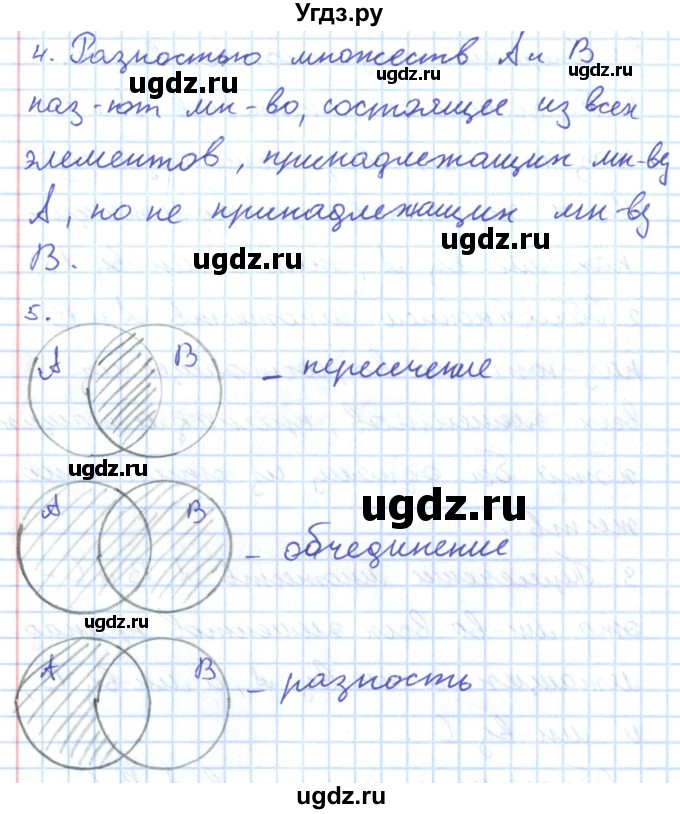 Угдз.ру
4. Разностью множеств A и B
ugdz.ru ugdz.ru
наз-ют мн-во, состоящее из всех
ugdz.ru
элементов, принадлежащих мн-ву
A, но не принадлежащих мн-ву
ugdz.ru
B.
ugdz.ru
5.
A B – пересечение
ugdz.ru
ugdz.ru
A B – объединение
ugdz.ru
A B – разность
ugdz.ru